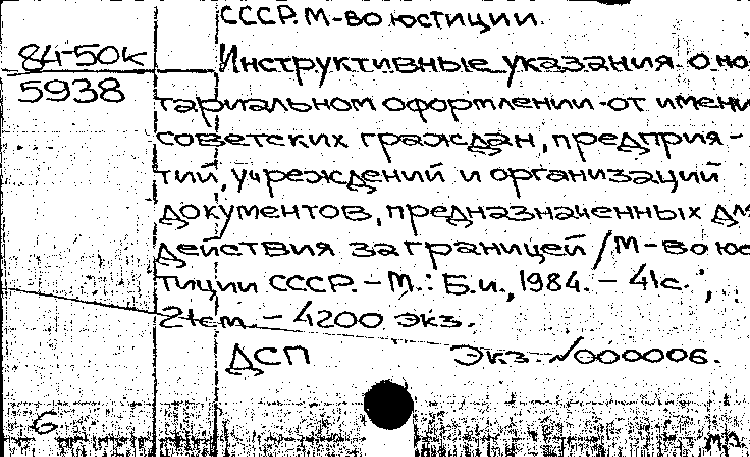 СССР. М-во юстиции.
84-50к
5938
Инструктивные указания о но
тариальном оформлении от имени
советских граждан, предприя-
тий, учреждений и организаций
документов, предназначенных дл
действия за границей / М-во юс
тиции СССР. - М.: Б.и., 1984. - 41с.;
21см. - 4200 экз.
ДСП Экз. №000006.
6